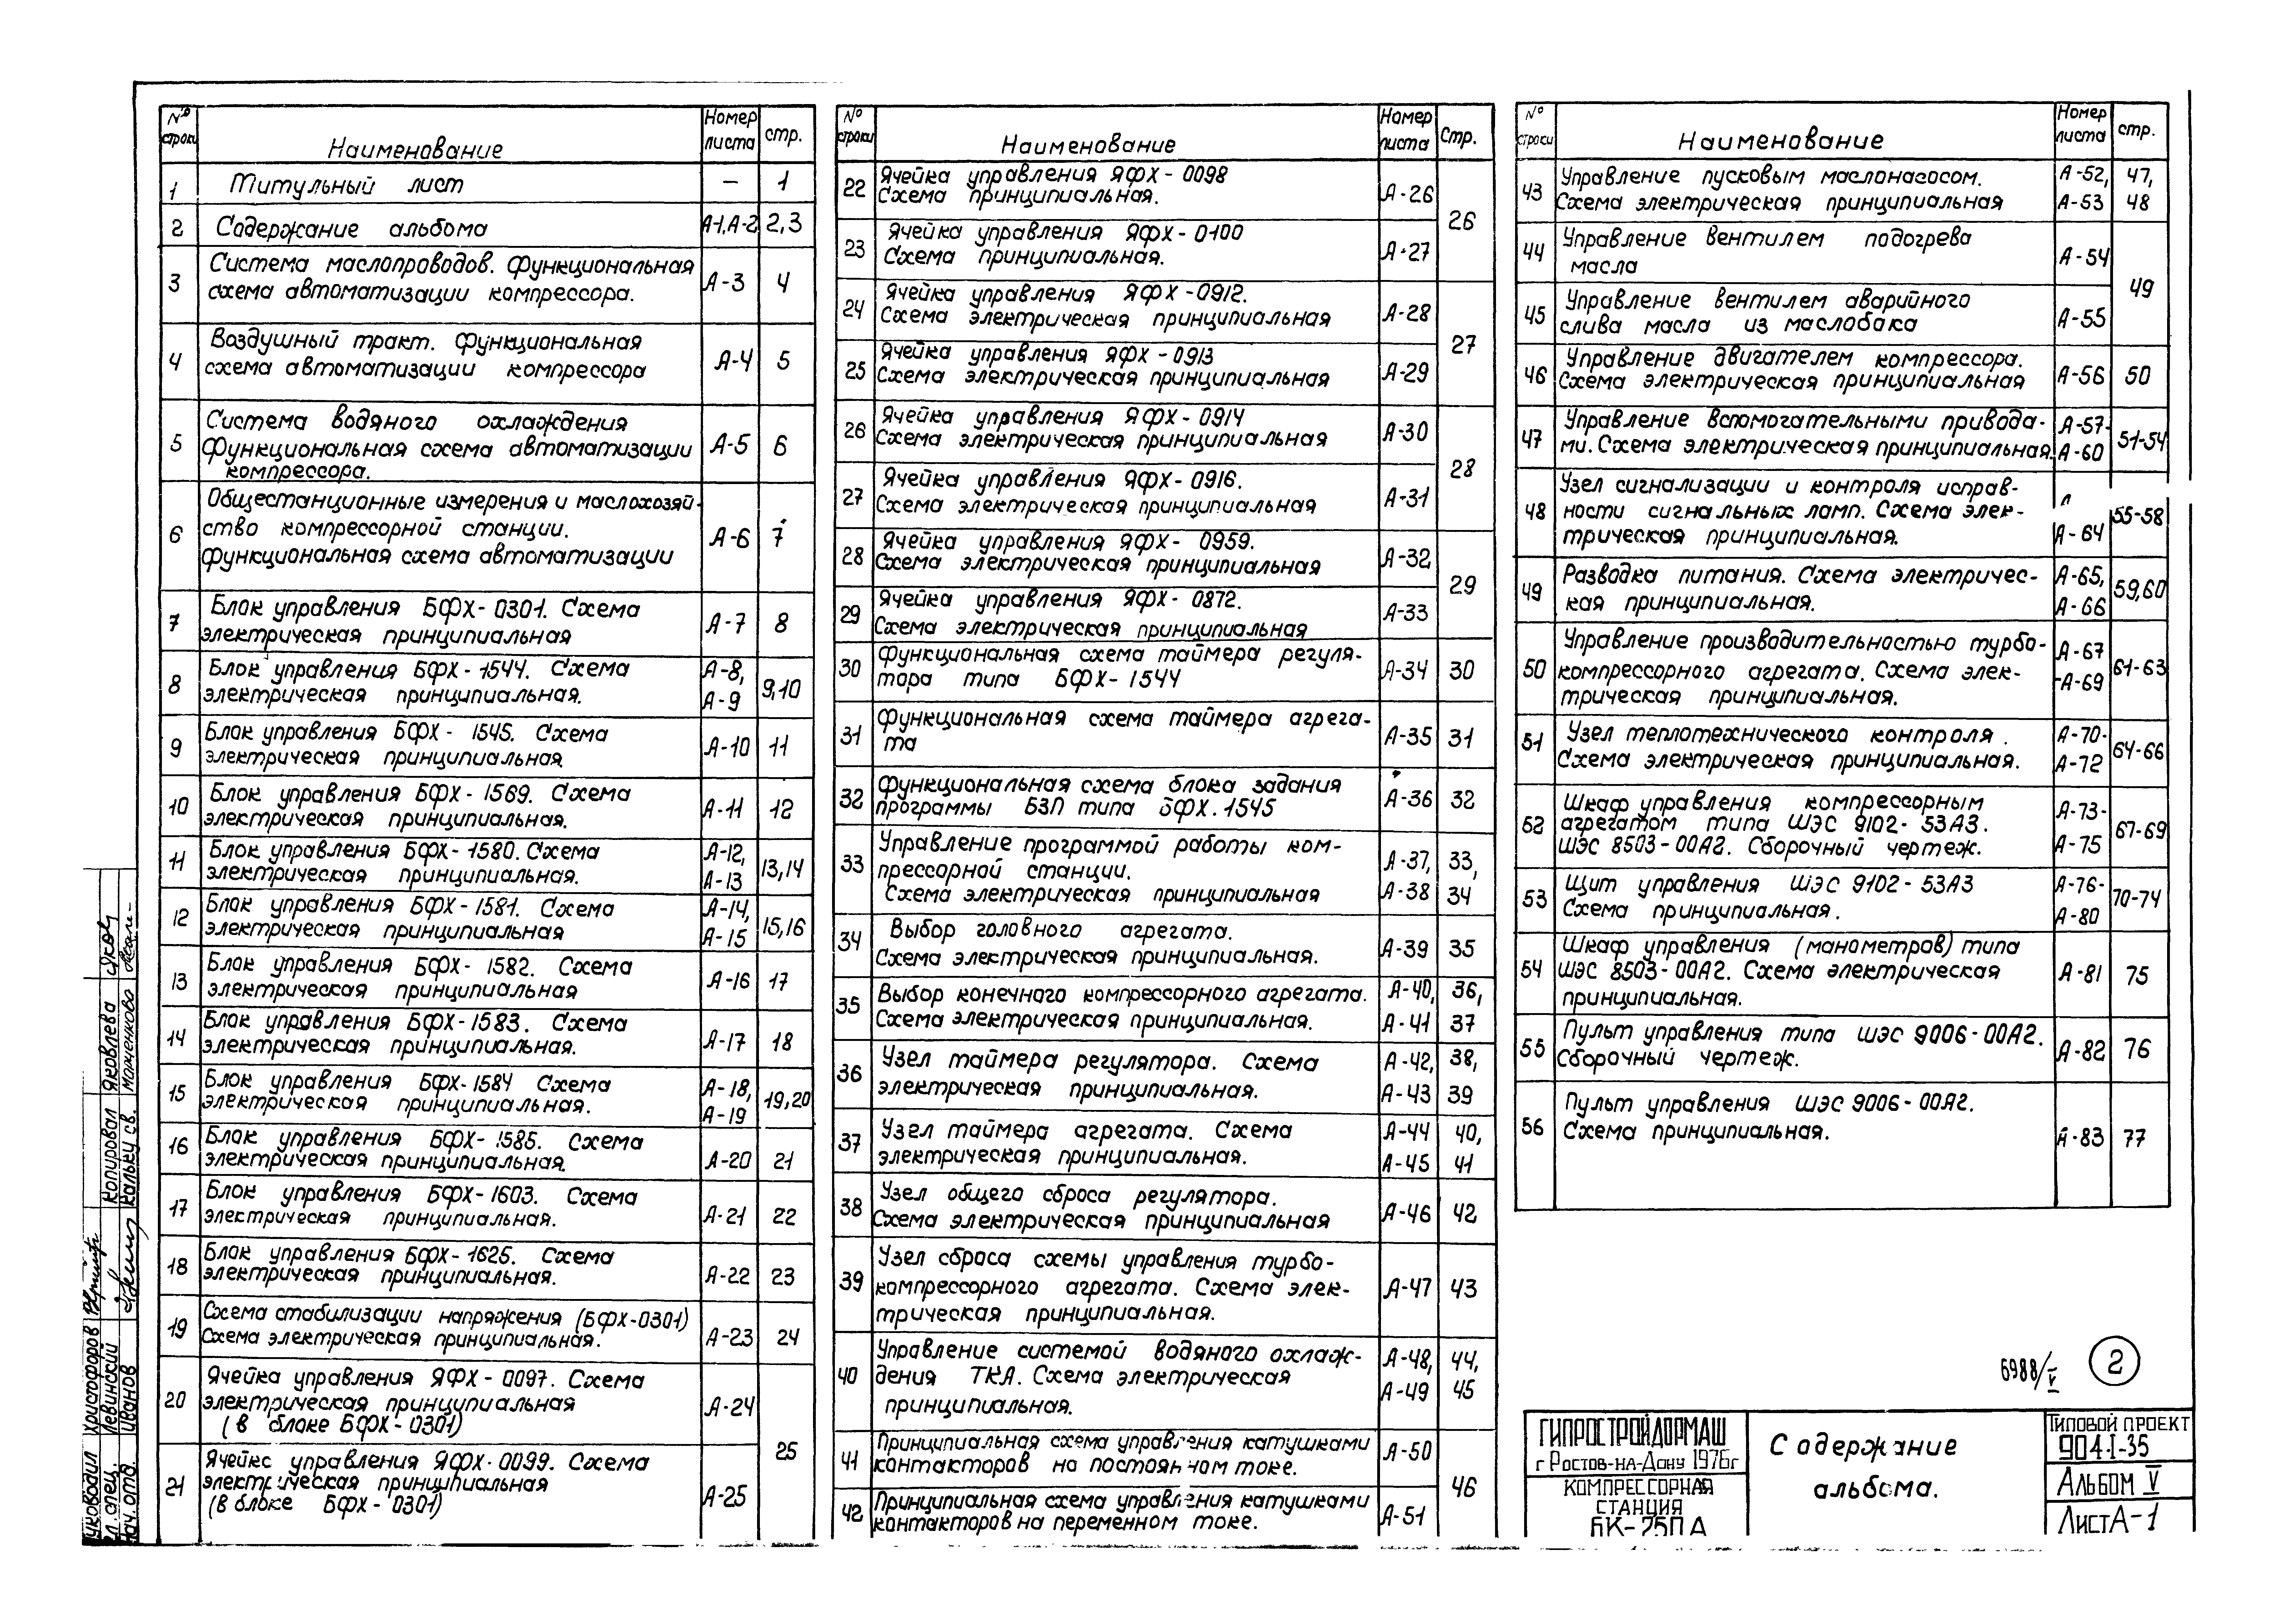 № строки Наименование Номер листа стр.
1 Титульный лист — 1
2 Содержание альбома А-1, А-2 2,3
3 Система маслопроводов. Функциональная
схема автоматизации компрессора. А-3 4
4 Воздушный тракт. Функциональная
схема автоматизации компрессора А-4 5
5 Система водяного охлаждения
Функциональная схема автоматизации А-5 6
компрессора.
6 Общестанционные измерения и маслохозяй-
ство компрессорной станции. А-6 7
Функциональная схема автоматизации
7 Блок управления БФХ-0301. Схема
электрическая принципиальная А-7 8
8 Блок управления БФХ-1544. Схема А-8,
электрическая принципиальная. А-9 9,10
9 Блок управления БФХ-1545. Схема
электрическая принципиальная А-10 11
10 Блок управления БФХ-1569. Схема
электрическая принципиальная. А-11 12
11 Блок управления БФХ-1580. Схема А-12,
электрическая принципиальная. А-13 13,14
12 Блок управления БФХ-1581. Схема А-14,
электрическая принципиальная А-15 15,16
13 Блок управления БФХ-1582. Схема
электрическая принципиальная А-16 17
14 Блок управления БФХ-1583. Схема
электрическая принципиальная. А-17 18
15 Блок управления БФХ-1584 Схема А-18,
электрическая принципиальная. А-19 19,20
16 Блок управления БФХ-1585. Схема
электрическая принципиальная. А-20 21
17 Блок управления БФХ-1603. Схема
электрическая принципиальная. А-21 22
18 Блок управления БФХ-1625. Схема
электрическая принципиальная. А-22 23
19 Схема стабилизации напряжения (БФХ-0301)
Схема электрическая принципиальная. А-23 24
20 Ячейка управления ЯФХ-0097. Схема
электрическая принципиальная А-24
(в блоке БФХ-0301)
25
21 Ячейка управления ЯФХ-0099. Схема
электрическая принципиальная А-25
(в блоке БФХ-0301)
№ строки Наименование Номер листа Стр.
22 Ячейка управления ЯФХ-0098
Схема принципиальная. А-26
26
23 Ячейка управления ЯФХ-0100
Схема принципиальная. А-27
24 Ячейка управления ЯФХ-0912.
Схема электрическая принципиальная А-28
27
25 Ячейка управления ЯФХ-0913
Схема электрическая принципиальная А-29
26 Ячейка управления ЯФХ-0914
Схема электрическая принципиальная А-30
28
27 Ячейка управления ЯФХ-0916.
Схема электрическая принципиальная А-31
28 Ячейка управления ЯФХ-0959.
Схема электрическая принципиальная А-32
29
29 Ячейка управления ЯФХ-0872.
Схема электрическая принципиальная А-33
30 Функциональная схема таймера регуля-
тора типа БФХ-1544 А-34 30
31 Функциональная схема таймера агрега-
та А-35 31
32 Функциональная схема блока задания
программы БЗП типа БФХ.1545 А-36 32
33 Управление программой работы ком-
прессорной станции. А-37, 33,
Схема электрическая принципиальная А-38 34
34 Выбор головного агрегата.
Схема электрическая принципиальная. А-39 35
35 Выбор конечного компрессорного агрегата. А-40, 36,
Схема электрическая принципиальная. А-41 37
36 Узел таймера регулятора. Схема А-42, 38,
электрическая принципиальная. А-43 39
37 Узел таймера агрегата. Схема А-44 40,
электрическая принципиальная. А-45 41
38 Узел общего сброса регулятора.
Схема электрическая принципиальная А-46 42
39 Узел сброса схемы управления турбо-
компрессорного агрегата. Схема элек- А-47 43
трическая принципиальная.
40 Управление системой водяного охлаж- А-48, 44,
дения ТКА. Схема электрическая А-49 45
принципиальная.
41 Принципиальная схема управления катушками А-50
контакторов на постоянном токе.
46
42 Принципиальная схема управления катушками
контакторов на переменном токе. А-51
№ строки Наименование Номер листа стр.
43 Управление пусковым маслонасосом. А-52, 47,
Схема электрическая принципиальная А-53 48
44 Управление вентилем подогрева
масла А-54
49
45 Управление вентилем аварийного
слива масла из маслобака А-55
46 Управление двигателем компрессора.
Схема электрическая принципиальная А-56 50
47 Управление вспомогательными привода- А-57-
ми. Схема электрическая принципиальная А-60 51-54
48 Узел сигнализации и контроля исправ-
ности сигнальных ламп. Схема элек- 55-58
трическая принципиальная. А-64
49 Разводка питания. Схема электричес- А-65,
кая принципиальная. А-66 59,60
50 Управление производительностью турбо- А-67
компрессорного агрегата. Схема элек- -А-69 61-63
трическая принципиальная.
51 Узел теплотехнического контроля. А-70-
Схема электрическая принципиальная. А-72 64-66
52 Шкаф управления компрессорным А-73-
агрегатом типа ШЭС 9102-53А3. 67-69
ШЭС 8503-00А2. Сборочный чертеж. А-75
53 Щит управления ШЭС 9102-53А3 А-76-
Схема принципиальная. А-80 70-74
54 Шкаф управления (манометров) типа
ШЭС 8503-00А2. Схема электрическая А-81 75
принципиальная.
55 Пульт управления типа ШЭС 9006-00А2.
Сборочный чертеж. А-82 76
56 Пульт управления ШЭС 9006-00А2.
Схема принципиальная. А-83 77
6988/V 2
ГИПРОСТРОЙДОРМАШ
г Ростов-на-Дону 1976г
КОМПРЕССОРНАЯ
СТАНЦИЯ
Содержание
альбома.
Типовой проект
904-1-35
Альбом V
Лист А-1
Копировал Яковлева
Кальку св. Моженкова
Руководил Христофоров
Гл. спец. Левинский
Нач. отд. Иванов